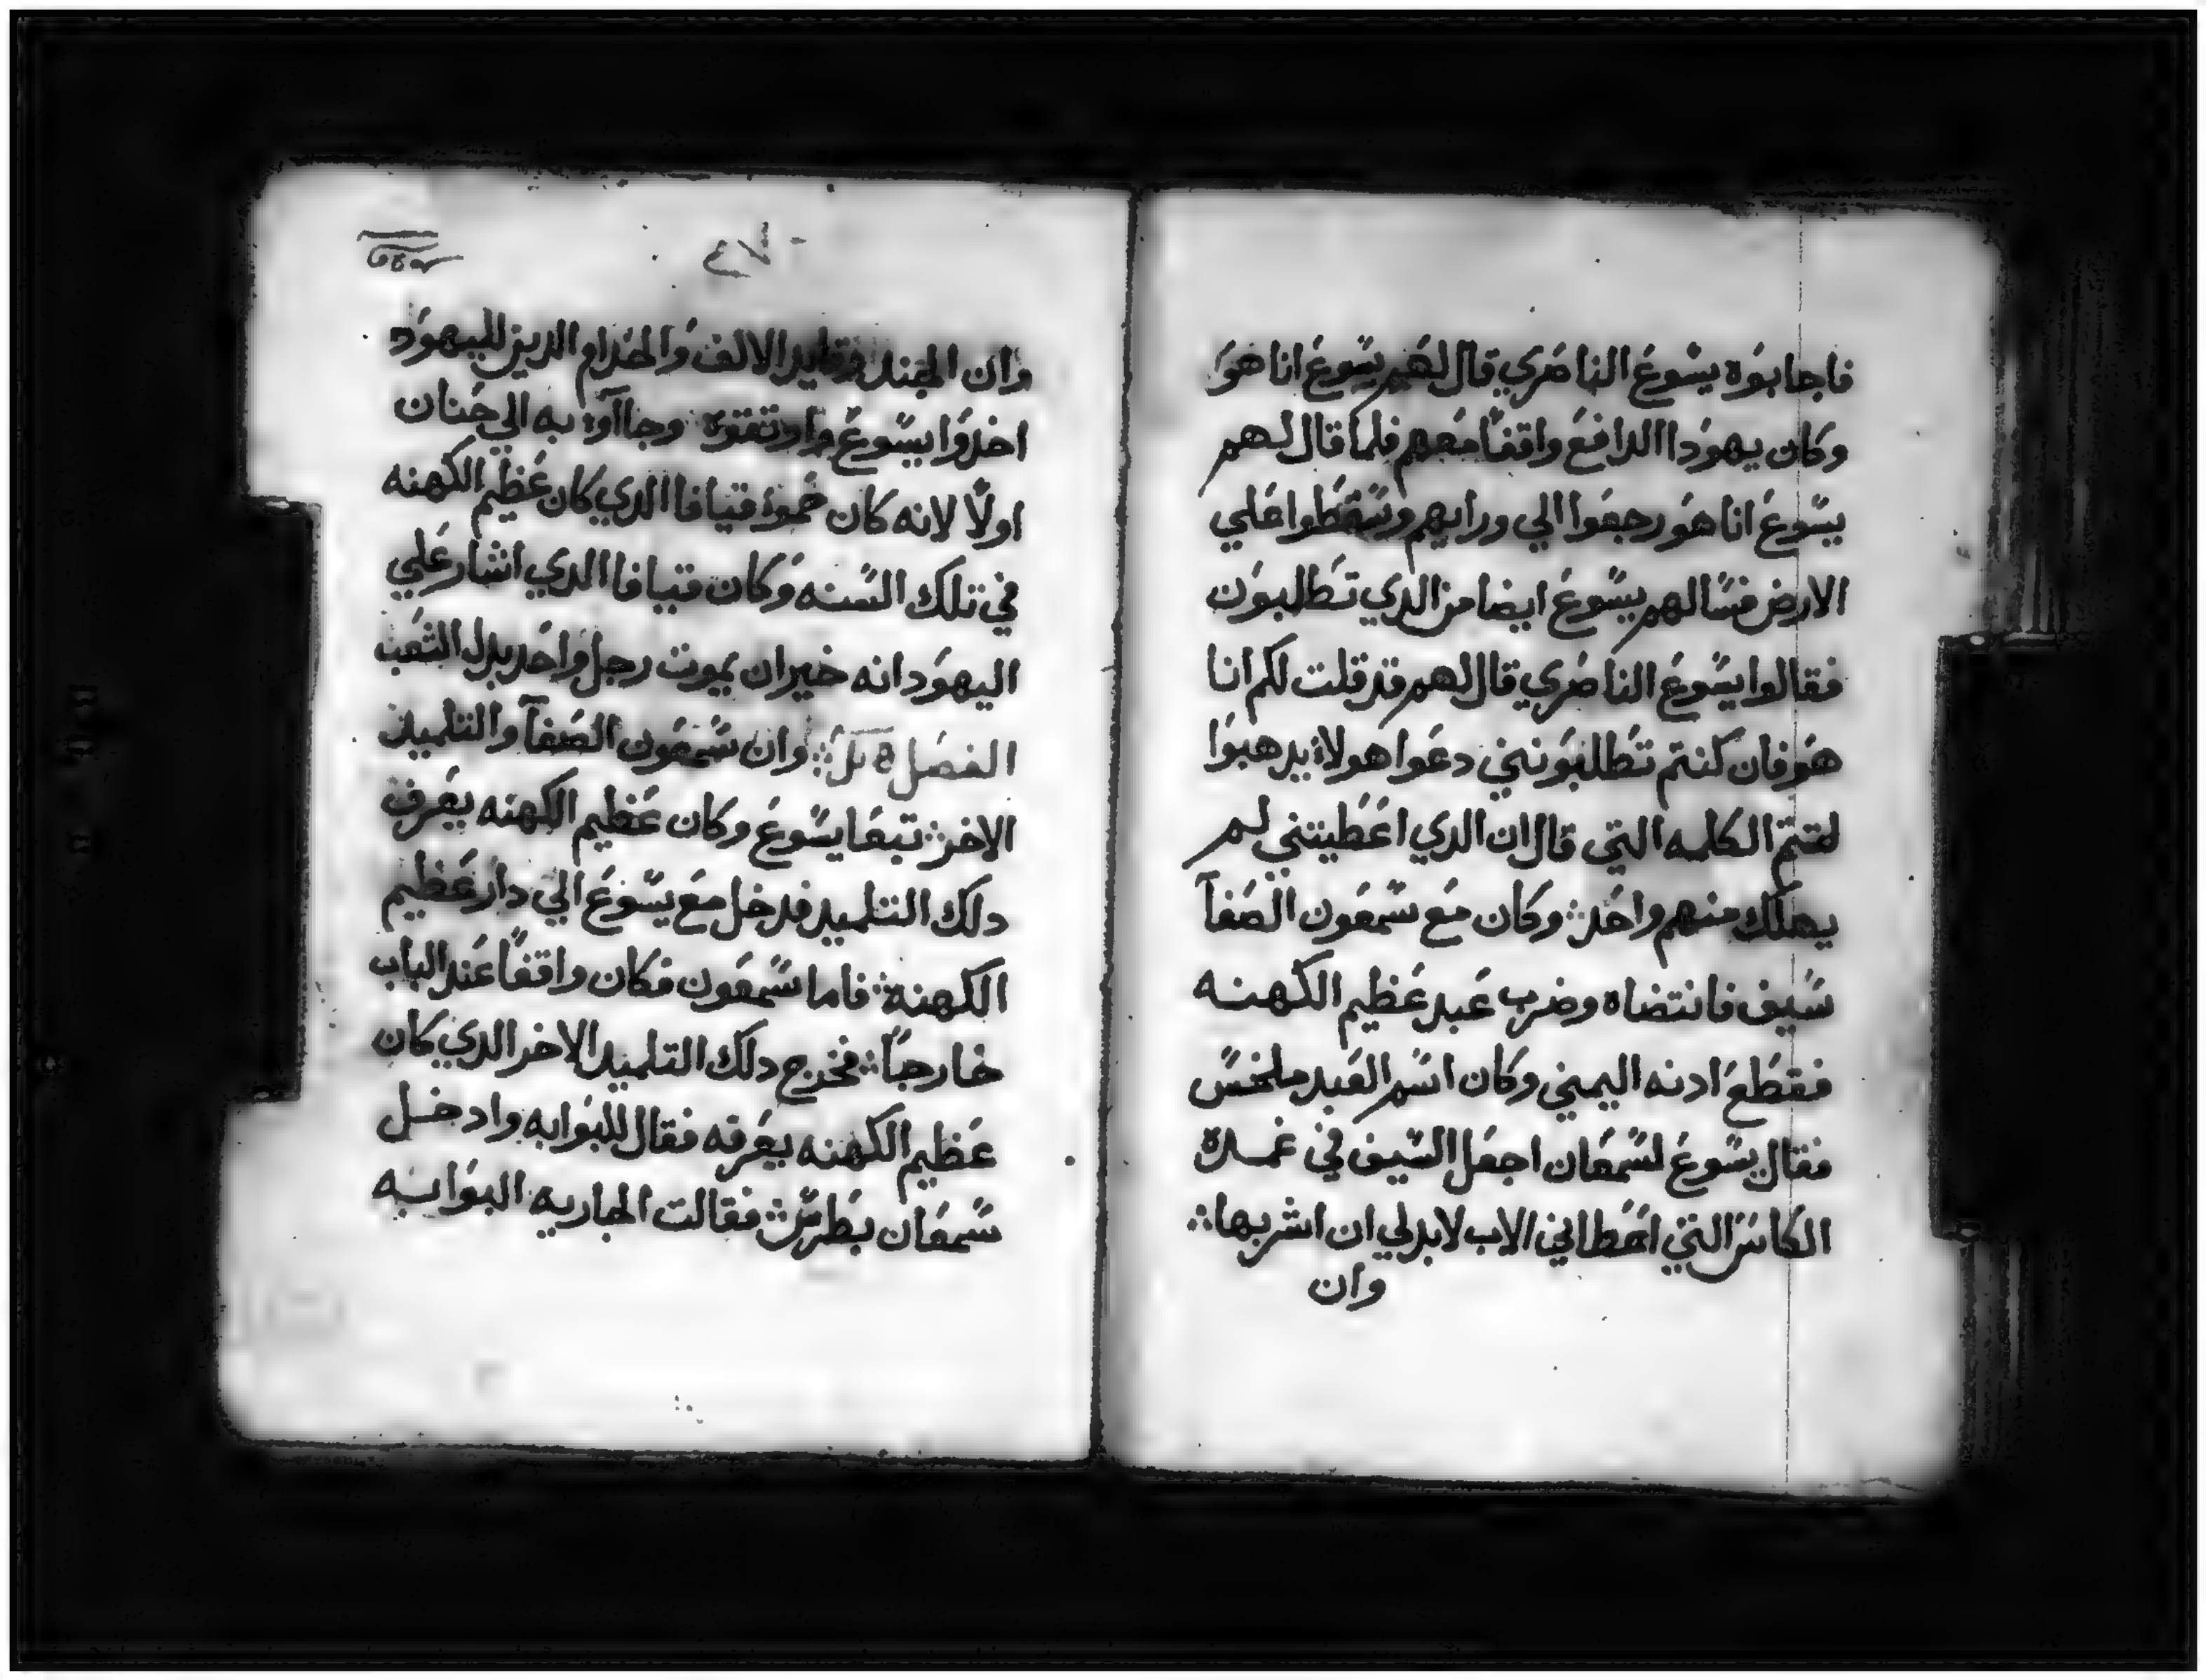 فاجابوه يسوع الناصري قال لهم يسوع انا هو
وكان يهودا الدافع واقفا معهم فلما قال لهم
يسوع انا هو رجعوا الي ورايهم وسقطوا علي
الارض فسالهم يسوع ايضا من الدي تطلبون
فقالوا يسوع الناصري قال لهم قد قلت لكم انا
هو فان كنتم تطلبونني دعوا هولاء يدهبوا
لتتم الكلمه التي قال ان الدي اعطيتني لم
يهلك منهم واحد ⁘ وكان مع سمعون الصفا
سيف فانتضاه وضرب عبد عظيم الكهنه
فقطع ادنه اليمني وكان اسم العبد ملخس
فقال يسوع لسمعان اجعل السيف في غمده
الكاس التي اعطاني الاب لابد لي ان اشربها ⁘
وان
وان الجند وقايد الالف والخدام الدين لليهود
اخدوا يسوع واوتقوه وجااوه به الي حنان
اولا لانه كان حموه قيافا الدي كان عظيم الكهنه
في تلك السنه وكان قيافا الدي اشار علي
اليهود انه خير ان يموت رجل واحد بدل الشعب
الفصل ⁘ وان سمعون الصفا والتلميد
الاخر ⁘ تبعا يسوع وكان عظيم الكهنه يعرف
دلك التلميد فدخل مع يسوع الي دار عظيم
الكهنه ⁘ فاما سمعون فكان واقفا عند الباب
خارجا ⁘ فخرج دلك التلميد الاخر الدي كان
عظيم الكهنه يعرفه فقال للبوابه وادخل
سمعان بطرس ⁘ فقالت الجاريه البوابه